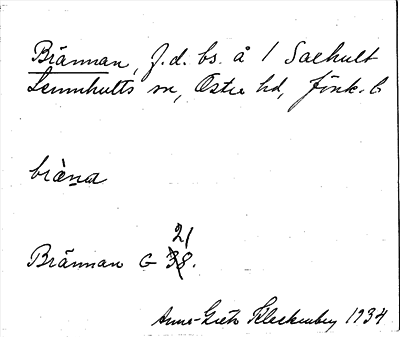 Brännan, f.d. bs. å 1 Saehult
Lemnhults sn, Östra hd, Jönk. l
bränа
Brännan G 38. 21
Anna-Greta Fleckenberg 1934